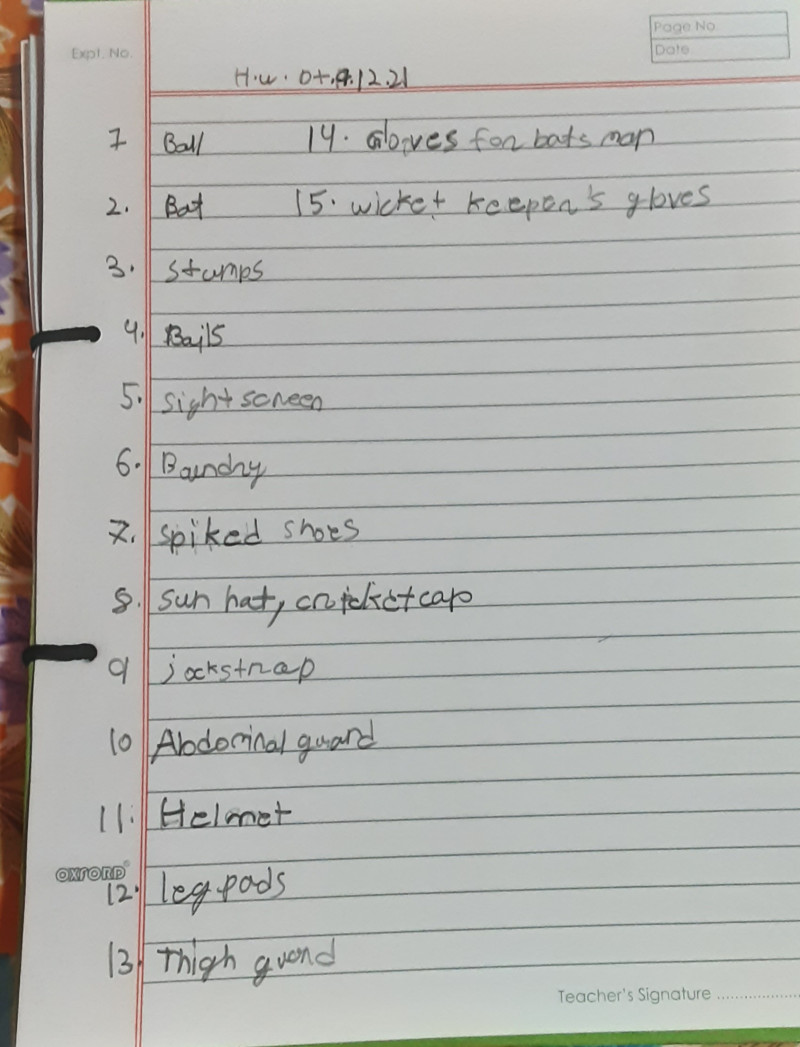 Expt. No.
Page No.
Date
H.w. Dt. 9.12.21
1 Ball 14. Gloves for batsman
2. Bat 15. wicket keeper's gloves
3. stumps
4. Bails
5. sight screen
6. Boundry
7. spiked shoes
8. sun hat, cricket cap
9 jockstrap
10 Abdominal guard
11. Helmet
OXFORD
12. leg pads
13. Thigh guard
Teacher's Signature ..................